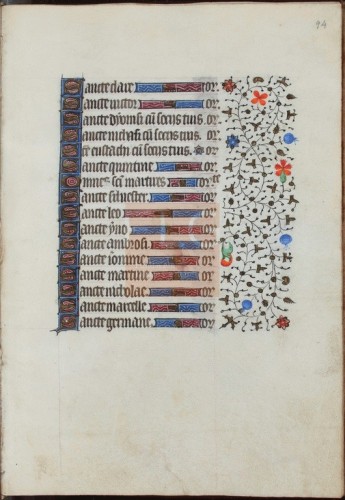 94
Sancte clare or
Sancte victor or
Sancte dyonisi cū sociis tuis. or
Sancte nichasi cū sociis tuis. or
Sce eustachi cū sociis tuis. or
Sancte quintine or
Omnes sci martires or
Sancte silvester or
Sancte leo or
Sancte yvo or
Sancte ambrosi or
Sancte ieronime or
Sancte martine or
Sancte nicholae or
Sancte marcelle or
Sancte germane or